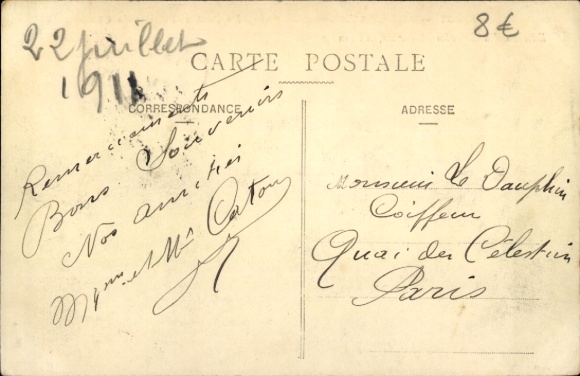 22 juillet
1911
8€
CARTE POSTALE
CORRESPONDANCE
ADRESSE
Remerciements
Bons Souvenirs
Nos amitiés
et
Monsieur Le Dauphin
Coiffeur
Quai des Célestin
Paris